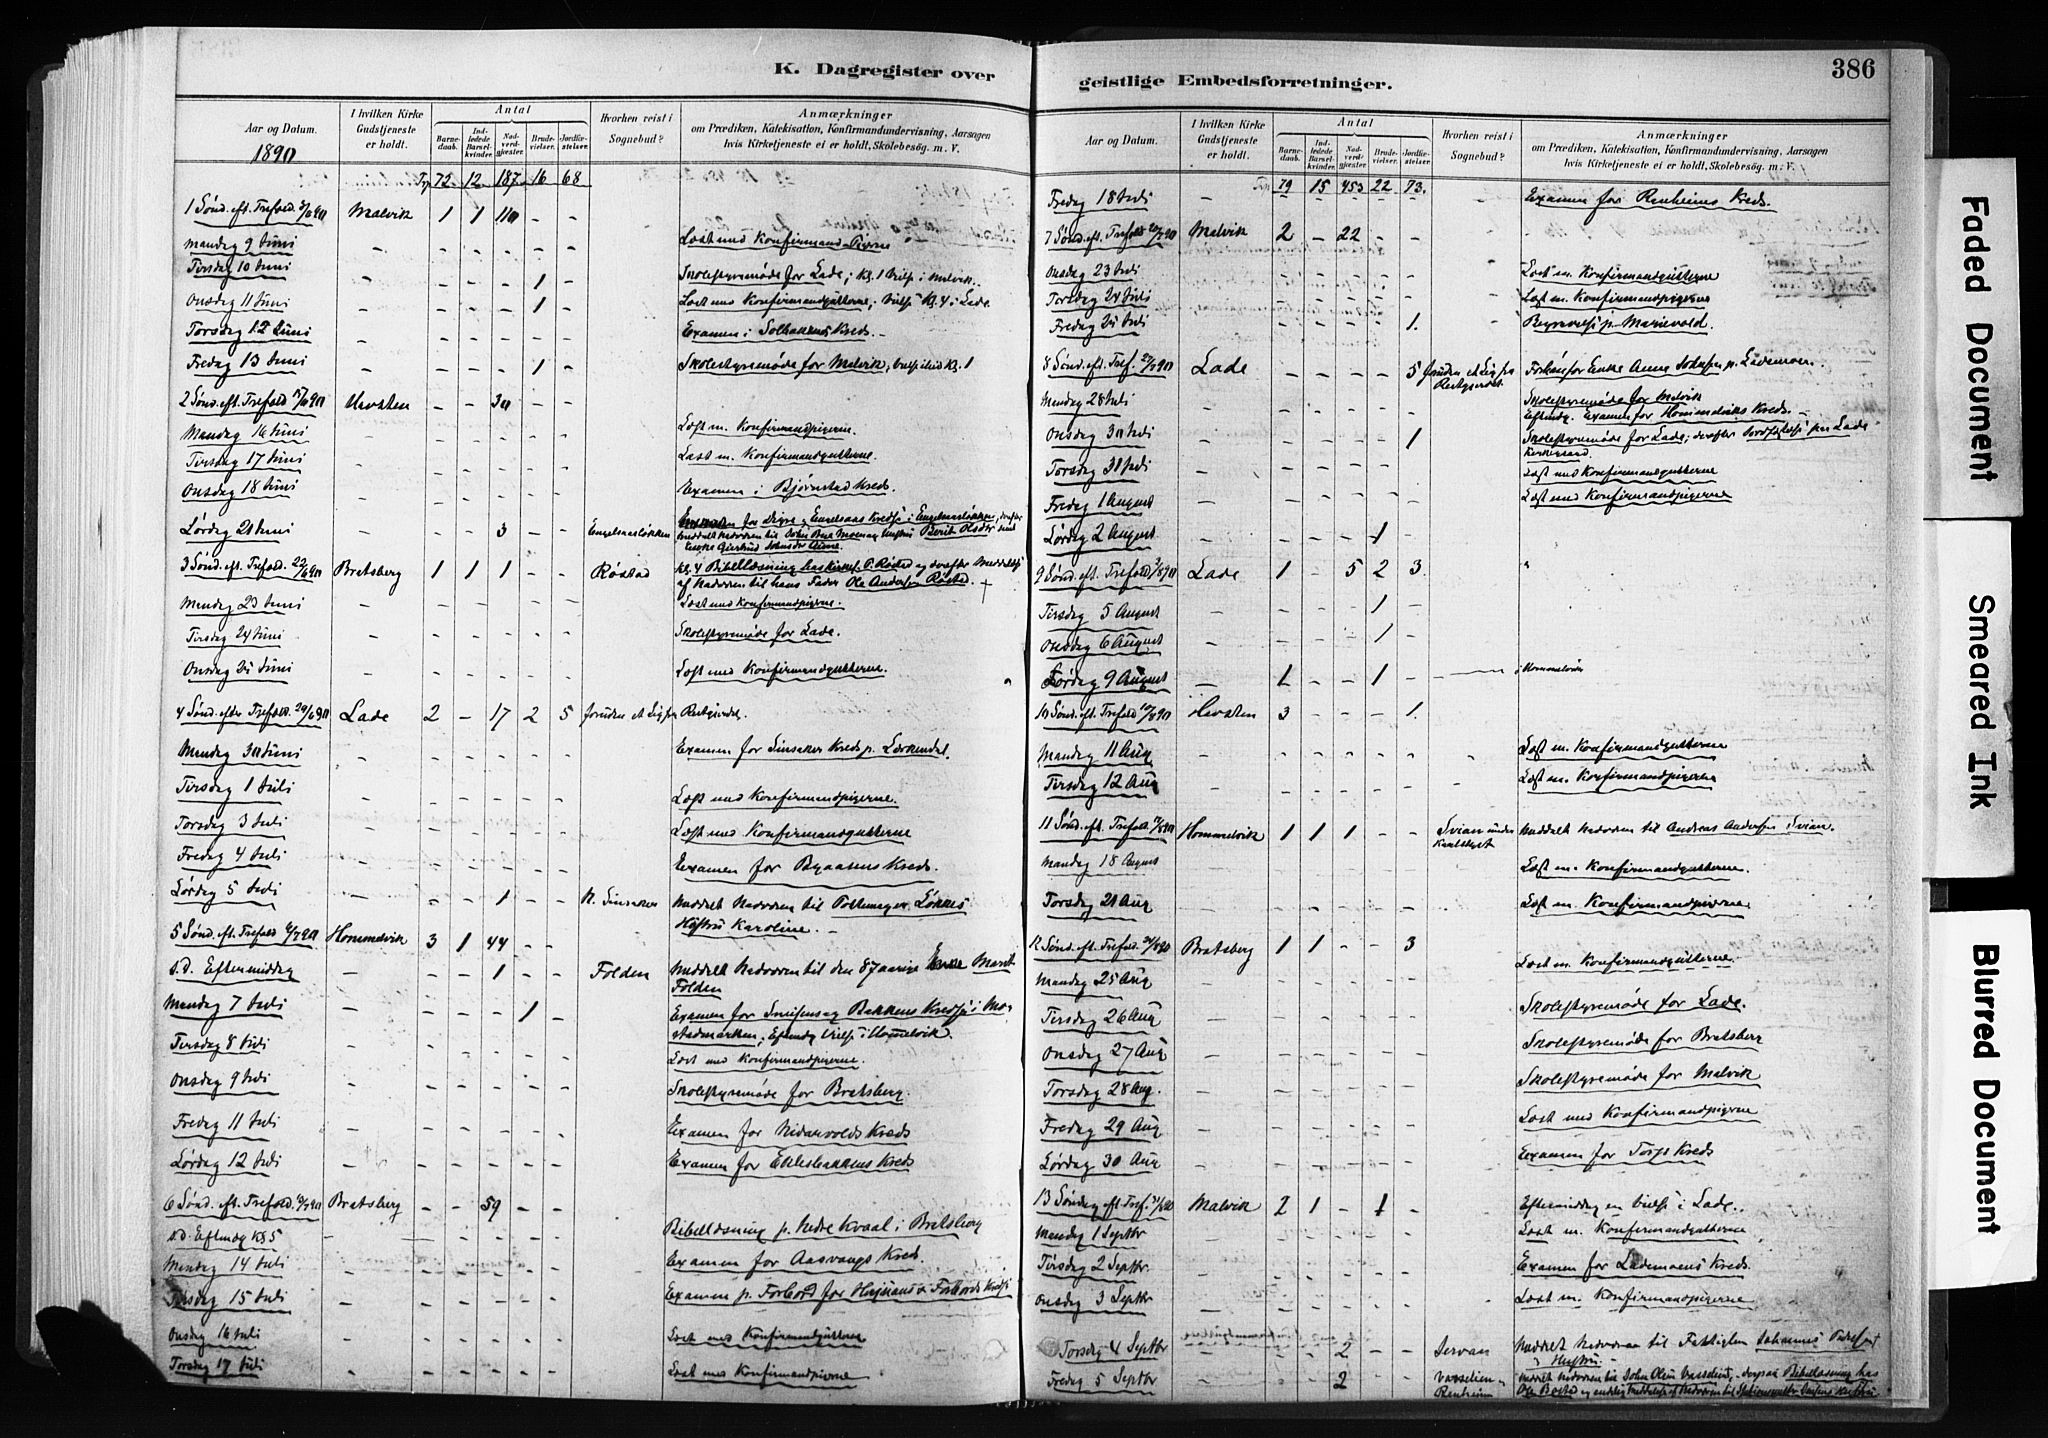 K. Dagregister over
Aar og Datum.
1890
I hvilken Kirke Gudstjeneste er holdt.
Antal
Barne-daab.
Ind-ledede Barsel-kvinder.
Nad-verd-gjester.
Brude-vielser.
Jordfæ-stelser.
Hvorhen reist i Sognebud?
Anmærkninger
om Prædiken, Katekisation, Konfirmandundervisning, Aarsagen
hvis Kirketjeneste ei er holdt, Skolebesøg. m. V.
72 12 187 16 68
1 Sønd. eft. Trefold. 8/6 90 Malvik 1 1 110 - -
Mandag 9 Juni - - - - - - Læst med Konfirmand-Pigerne
Tirsdag 10 Juni - - - - 1 - Skolestyremøde for Lade; Kl. 1 Vielse i Malvik.
Onsdag 11 Juni - - - - 1 - Læst med Konfirmandgutterne; Vielse Kl. 4 i Lade
Torsdag 12 Juni - - - - - - Examen i Solbakkens Kreds.
Fredag 13 Juni - - - - 1 - Skolestyremøde for Malvik, Kl. 1
2 Sønd. eft. Trefold. 15/6 90 Hevsten - - 30 - -
Mandag 16 Juni - - - - - - Læst m. Konfirmandpigerne.
Tirsdag 17 Juni - - - - - - Læst m. Konfirmandgutterne.
Onsdag 18 Juni - - - - - - Examen i Bjørnstad Kreds.
Lørdag 21 Juni - - - 3 - - Engelsaasløkken
3 Sønd. eft. Trefold. 22/6 90 Bratsberg 1 1 1 - - Røstad Kl. 4 Bibellæsning hos P. Røstad og derefter Meddelelse
af Nadveren til hans Fader Ole Andersen Røstad.
Mandag 23 Juni - - - - - - Læst med Konfirmandpigerne.
Tirsdag 24 Juni - - - - - - Skolestyremøde for Lade.
Onsdag 25 Juni - - - - - - Læst med Konfirmandgutterne.
4 Sønd. efter Trefold. 29/6 90 Lade 2 - 17 2 5
Mandag 30 Juni - - - - - - Examen for Sinsaker Kreds p. Lerkendal.
Tirsdag 1 Juli - - - - - - Læst med Konfirmandpigerne.
Torsdag 3 Juli - - - - - - Læst med Konfirmandgutterne
Fredag 4 Juli - - - - - - Examen for Byaasens Kreds.
Lørdag 5 Juli - - - 1 - - N. Sinsaker Meddelt Nadveren til Pottemager Løkkes
Hustru Karoline.
5 Sønd. eft. Trefold 6/7 90 Hommelvik 3 1 44 - -
S.D. Eftermiddag - - - 1 - - Folden Meddelt Nadveren til den 87 aarige Enke Marit
Folden
Mandag 7 Juli - - - - 1 - Examen for Bakkens Kredse i Mo-
stadmarken; Eftmdg Vielse i Hommelvik.
Tirsdag 8 Juli - - - - - - Læst med Konfirmandpigerne.
Onsdag 9 Juli - - - - - - Skolestyremøde for Bratsberg.
Fredag 11 Juli - - - - - - Examen for Nidarvolds Kreds
Lørdag 12 Juli - - - - - - Examen for Eklesbakkens Kreds
6 Sønd. eft. Trefold. 13/7 90 Bratsberg - - 59 - -
S.D. Eftmdg Kl 5 - - - - - - Bibellæsning p. Nedre Kvaal i Bratsberg
Mandag 14 Juli - - - - - - Examen for Aasvangs Kreds.
Tirsdag 15 Juli - - - - - - Examen p. Forbord for
Onsdag 16 Juli - - - - - - Læst med Konfirmandgutterne
Torsdag 17 Juli - - - - - - Læst med Konfirmandpigerne
geistlige Embedsforretninger.
386
Aar og Datum.
I hvilken Kirke Gudstjeneste er holdt.
Antal
Barne-daab.
Ind-ledede Barsel-kvinder.
Nad-verd-gjester.
Brude-vielser.
Jordfæ-stelser.
Hvorhen reist i Sognebud?
Anmærkninger
om Prædiken, Katekisation, Konfirmandundervisning, Aarsagen
hvis Kirketjeneste ei er holdt, Skolebesøg. m. V.
79 15 453 22 73.
Fredag 18 Juli - Examen for Renheims Kreds.
7 Sønd. eft. Trefold 20/7 90 Malvik 2 - 22 - -
Onsdag 23 Juli - - - - - - Læst m. Konfirmandgutterne
Torsdag 24 Juli - - - - - - Læst m. Konfirmandpigerne
Fredag 25 Juli - - - - - 1. Begravelse p. Marievold.
8 Sønd. eft. Tref. 27/7 90 Lade - - - - 5
Mandag 28 Juli - - - - - - Skolestyremøde for Malvik
Eftmdg. Examen for Hommelviks Kreds.
Onsdag 30 Juli - - - - - 1 Skolestyremøde for Lade; derefter Jordfæstelse paa Lade
Kirkegaard.
Torsdag 31 Juli - - - - - - Læst med Konfirmandgutterne
Fredag 1 August - - - - - - Læst med Konfirmandpigerne
Lørdag 2 August - - - - 1 -
9 Sønd. eft. Trefold. 3/8 90 Lade 1 - 5 2 3.
Tirsdag 5 August - - - - 1 -
Onsdag 6 August - - - - 1 -
Lørdag 9 August - 1 - - 1 - i Hommelvik
10 Sønd. eft. Trefold 10/8 90 Hevsten 3 - - - 1.
Mandag 11 Aug - - - - - - Læst m. Konfirmandgutterne
Tirsdag 12 Aug - - - - - - Læst m. Konfirmandpigerne
11 Sønd. eft. Trefold. 17/8 90 Hommelvik 1 1 1 - - Svian under Karlslyst Meddelt Nadveren til Andreas Andersen Svian.
Mandag 18 August - - - - - - Læst m. Konfirmandgutterne.
Torsdag 21 Aug - - - - - - Læst m. Konfirmandpigerne
12 Sønd. eft. Trefold. 24/8 90 Bratsberg 1 1 - - 3
Mandag 25 Aug - - - - - - Læst m. Konfirmandgutterne.
Tirsdag 26 Aug - - - - - - Skolestyremøde for Lade.
Onsdag 27 Aug - - - - - - Skolestyremøde for Bratsberg
Torsdag 28 Aug. - - - - - - Skolestyremøde for Malvik
Fredag 29 Aug - - - - - - Læst med Konfirmandpigerne
Lørdag 30 Aug - - - - - - Examen for Torps Kreds
13 Søndag eft. Tref. 31/8 90 Malvik 2 1 - 1 - Eftermiddag en Vielse i Lade.
Mandag 1 Septbr - - - - - - Læst m. Konfirmandgutterne
Tirsdag 2 Septbr. - - - - - - Examen for Lademoens Kreds.
Onsdag 3 Septbr - - - - - - Læst m. Konfirmandpigerne
Torsdag 4 Septbr - - - 2 - - Meddelt Nadveren til Fattiglem Johannes
& Hustru.
Fredag 5 Septbr - - - 2 - - Vasselien - Renheim
Faded Document
Smeared Ink
Blurred Document